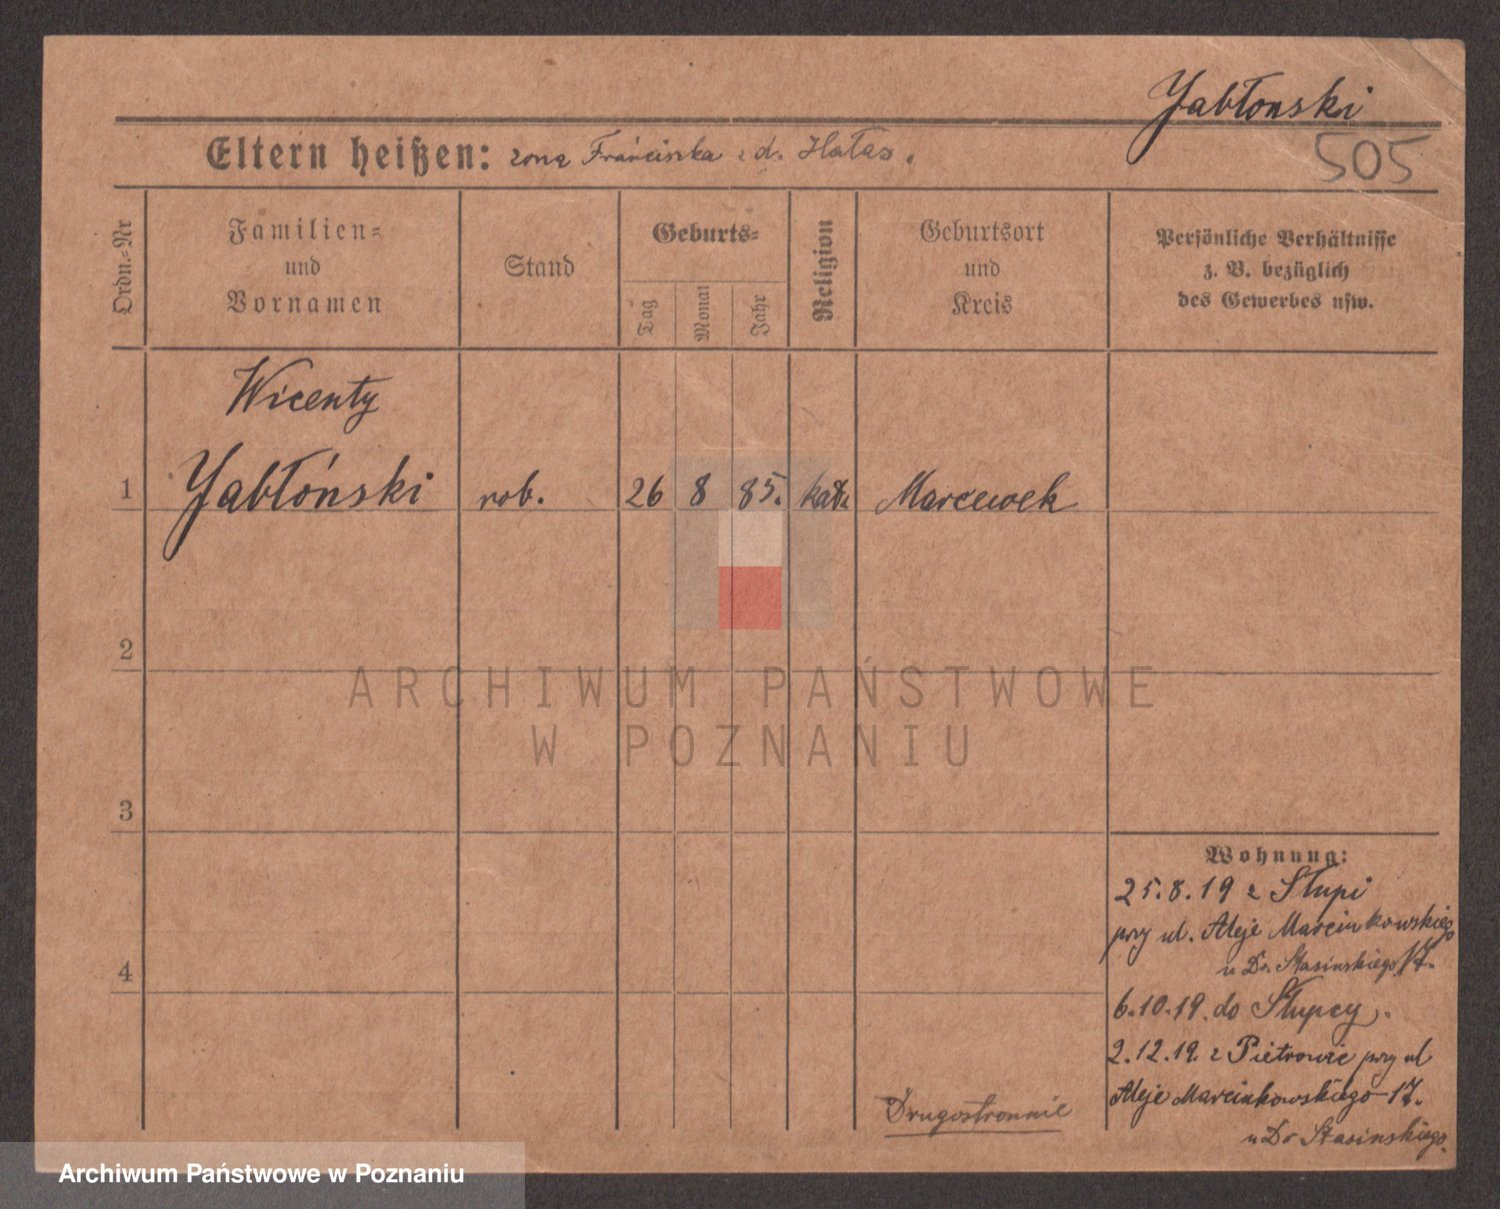 Jabłonski
505
Eltern heißen: zona Franciszka zd. Hałas.
Ordn.-Nr
Familien-
und
Vornamen
Stand
Geburts-
Tag
Monat
Jahr
Religion
Geburtsort
und
Kreis
Persönliche Verhältnisse
z. B. bezüglich
des Gewerbes usw.
Wicenty
1 Jabłoński rob. 26 8 85. kath Marcewek
2
3
4
ARCHIWUM PAŃSTWOWE
W POZNANIU
Wohnung:
25.8.19 z Słupi
przy ul. Aleje Marcinkowskiego
u Dr. Stasinskiego 17.
6.10.19. do Słupcy.
2.12.19. z Pietrowic przy ul
Aleje Marcinkowskiego 17.
u Dr Stasinskiego.
Drugostronnie
Archiwum Państwowe w Poznaniu